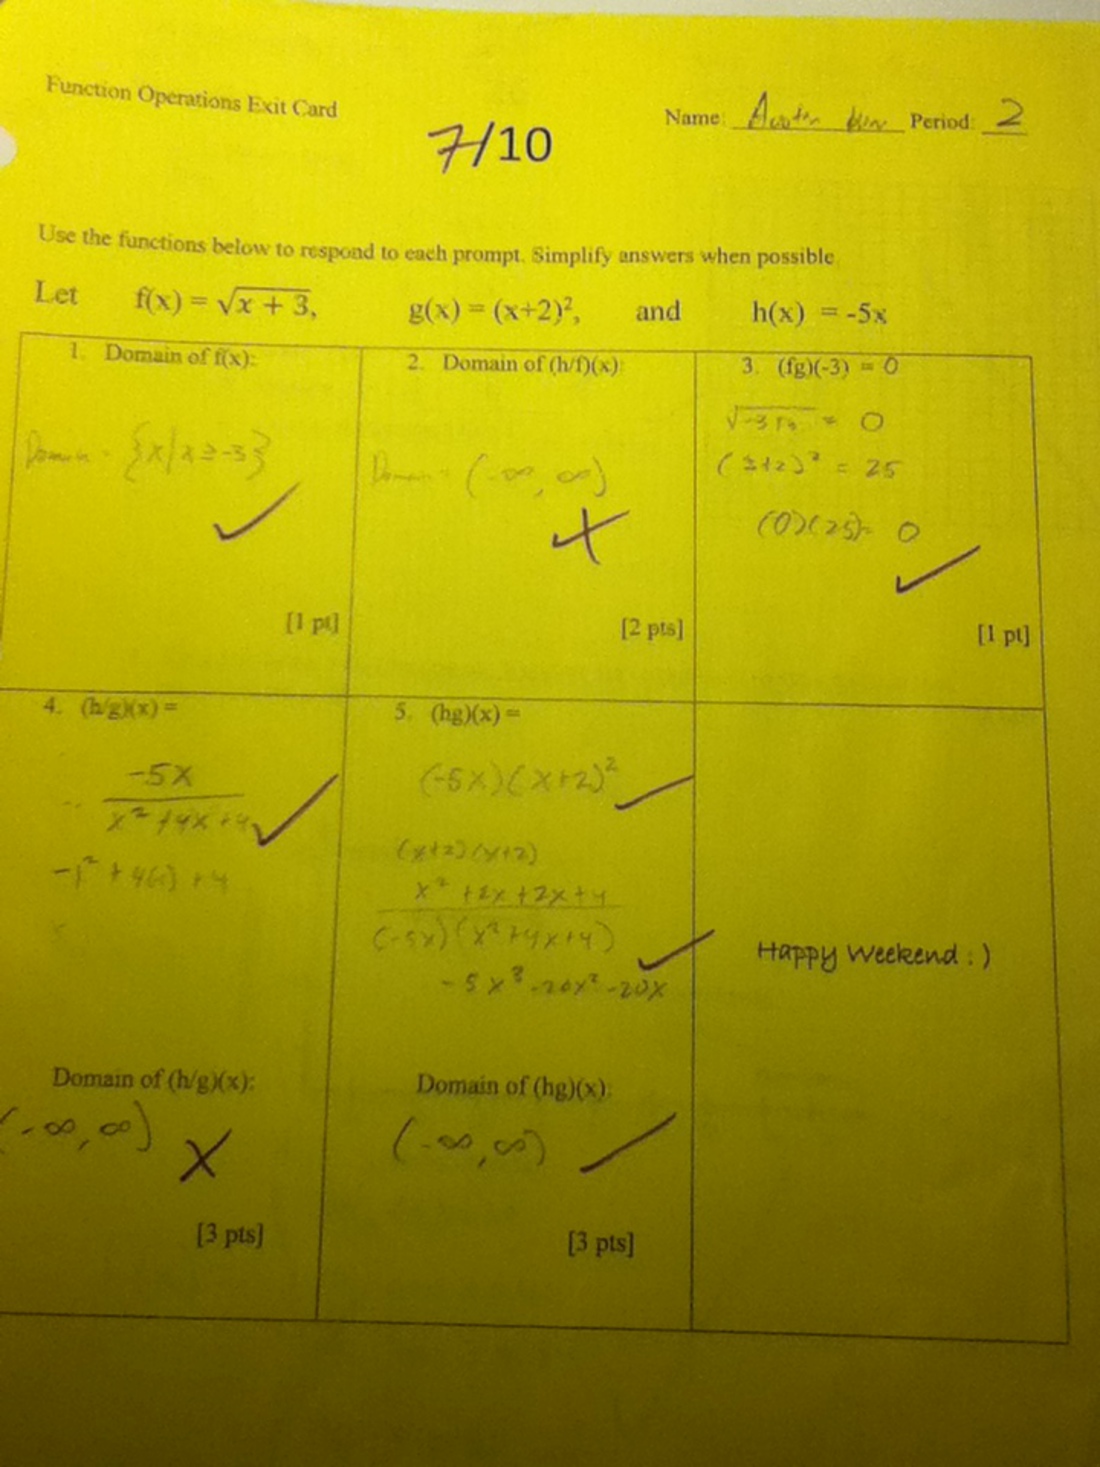 Function Operations Exit Card
Name: Period: 2
7/10
Use the functions below to respond to each prompt. Simplify answers when possible.
Let f(x) = √x + 3, g(x) = (x+2)², and h(x) = -5x
1. Domain of f(x):
Domain = {x|x ≥ -3}
[1 pt]
2. Domain of (h/f)(x):
Domain = (-∞, ∞)
[2 pts]
3. (fg)(-3) = 0
√-3+3 = 0
(3+2)² = 25
(0)(25)= 0
[1 pt]
4. (h/g)(x) =
-5x
x² +4x +4
+ 4
Domain of (h/g)(x):
(-∞, ∞)
[3 pts]
5. (hg)(x) =
(-5x)(x+2)²
(x+2)(x+2)
x² +2x +2x +4
(-5x)(x²+4x+4)
-5x³ -20x² -20x
Domain of (hg)(x):
(-∞, ∞)
[3 pts]
Happy Weekend : )